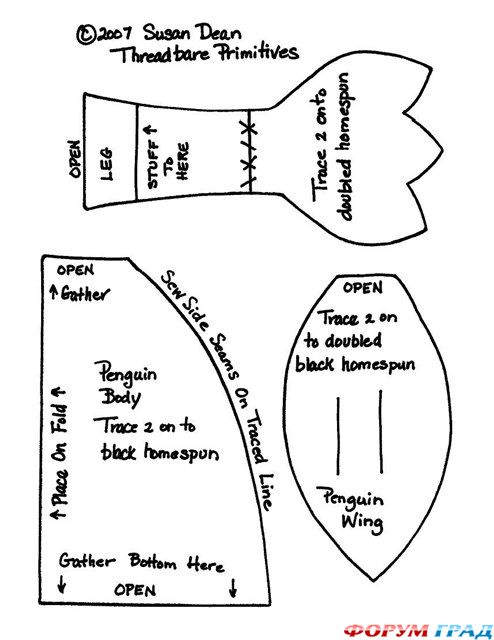 ©2007 Susan Dean
Threadbare Primitives
OPEN
LEG
STUFF ↑
TO
HERE
Trace 2 onto
doubled homespun
OPEN
↑ Gather
Sew Side Seams On Traced Line
Penguin
Body
Trace 2 on to
black homespun
↑ Place On Fold ↑
Gather Bottom Here
↓ OPEN ↓
OPEN
Trace 2 on
to doubled
black homespun
Penguin
Wing
ФОРУМ ГРАД